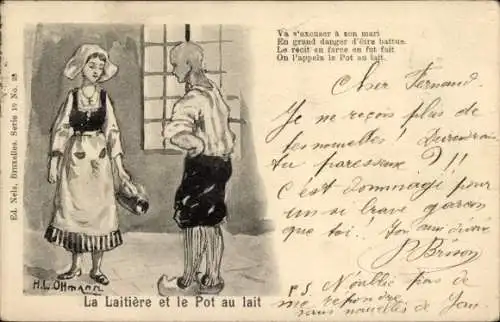 Va s'excuser à son mari
En grand danger d'être battue.
Le récit en farce en fut fait
On l'appela le Pot au lait.
Cher Fernand.
Je ne reçois plus de
tes nouvelles! Deviendrais
tu paresseux?!!
C'est dommage pour
un si brave garçon
que toi! Ton ami dévoué
P. Brison
P.S N'oublie pas de
me répondre
sans nouvelles de
H.L. Ottmann
La Laitière et le Pot au lait
Ed. Nels, Bruxelles, Serie 10 No. 28